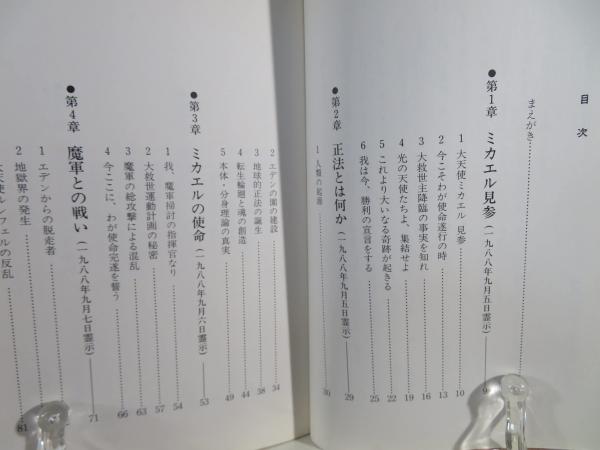 目次
まえがき
●第1章 ミカエル見参(一九八八年九月五日霊示) 9
1 大天使ミカエル 見参 10
2 今こそわが使命遂行の時 13
3 大救世主降臨の事実を知れ 16
4 光の天使たちよ、集結せよ 19
5 これより大いなる奇跡が起きる 22
6 我は今、勝利の宣言をする 25
●第2章 正法とは何か(一九八八年九月五日霊示) 29
1 人類の起源 30
2 エデンの園の建設 34
3 地球的正法の誕生 38
4 転生輪廻と魂の創造 44
5 本体・分身理論の真実 49
●第3章 ミカエルの使命(一九八八年九月六日霊示) 53
1 我、魔軍掃討の指揮官なり 54
2 大救世運動計画の秘密 57
3 魔軍の総攻撃による混乱 63
4 今ここに、わが使命完遂を誓う 66
●第4章 魔軍との戦い(一九八八年九月七日霊示) 71
1 エデンからの脱走者
2 地獄界の発生 81
天使ルシフェルの反乱